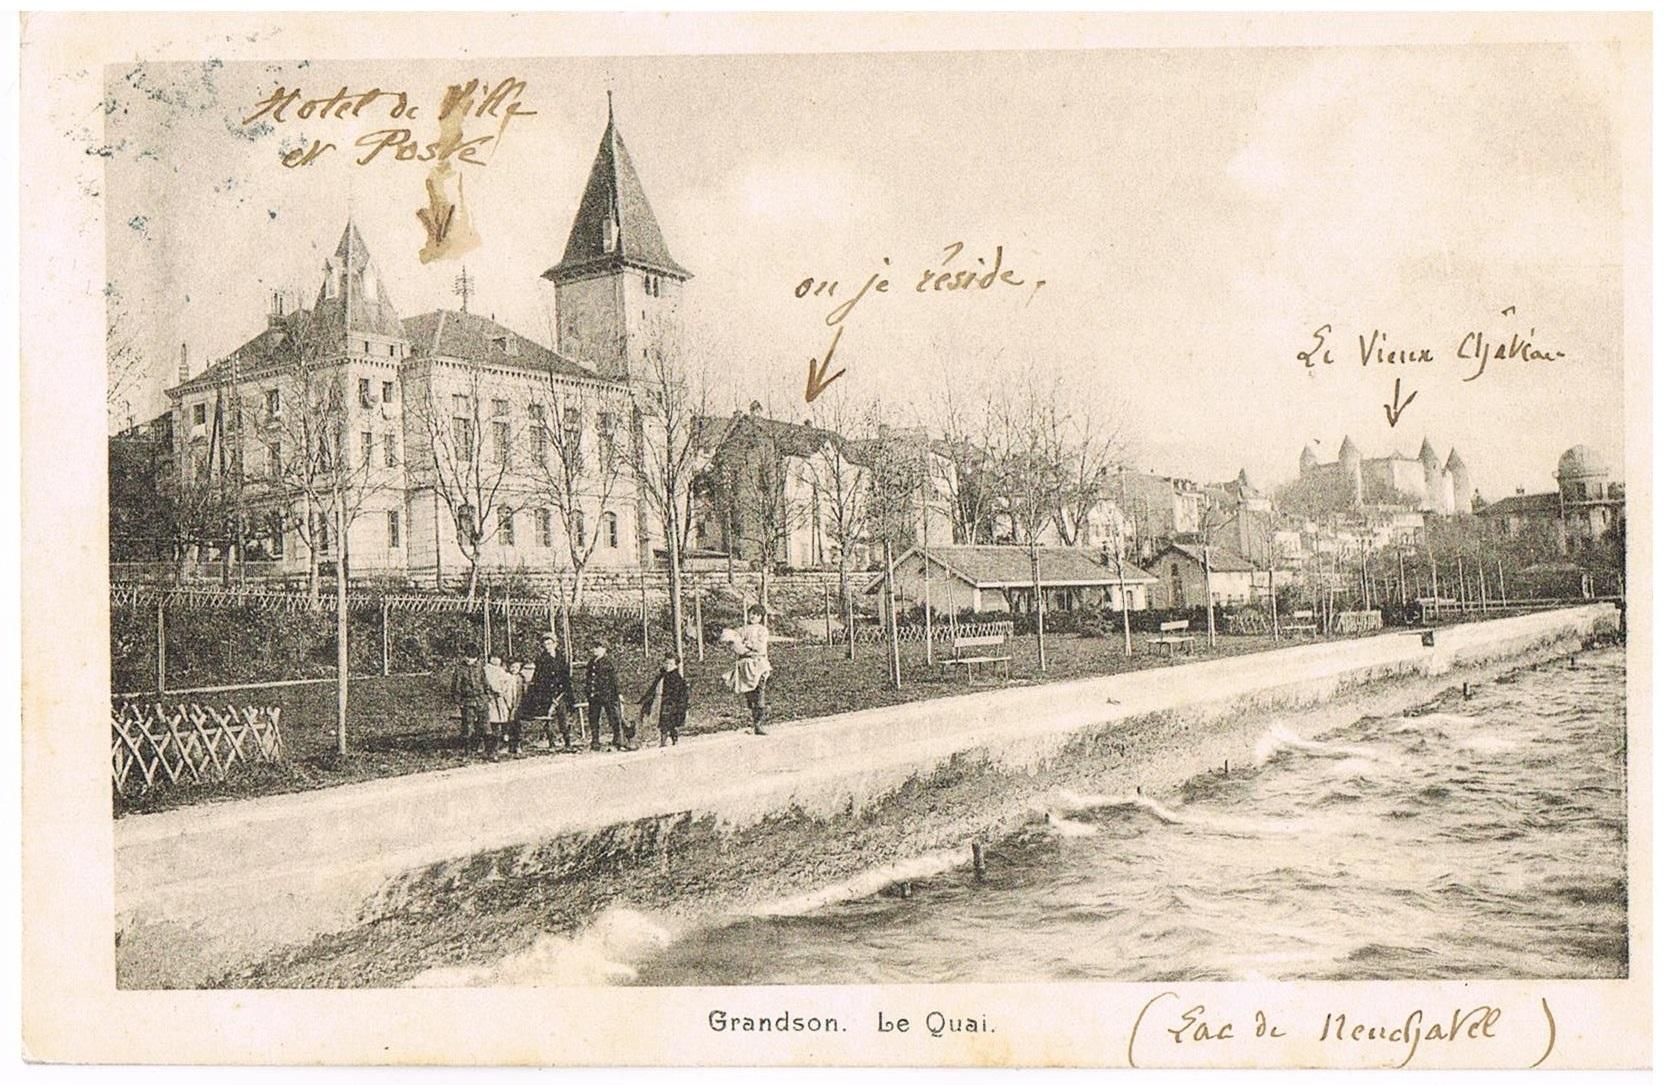 Hotel de Ville
et Poste
ou je réside.
Le Vieux Château
Grandson. Le Quai.
(Lac de Neuchatel)